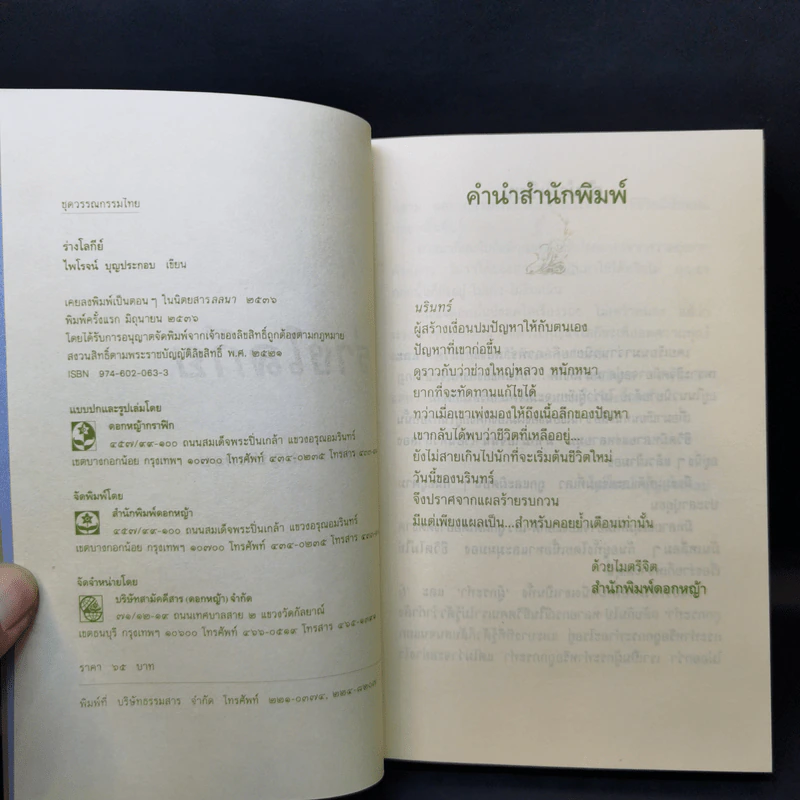 ชุดวรรณกรรมไทย
ร่างโลกีย์
ไพโรจน์ บุญประกอบ เขียน
เคยลงพิมพ์เป็นตอนๆ ในนิตยสารลลนา ๒๕๓๖
พิมพ์ครั้งแรก มิถุนายน ๒๕๓๖
โดยได้รับการอนุญาตจัดพิมพ์จากเจ้าของลิขสิทธิ์ถูกต้องตามกฎหมาย
สงวนสิทธิ์ตามพระราชบัญญัติลิขสิทธิ์ พ.ศ. ๒๕๒๑
ISBN 974-602-063-3
แบบปกและรูปเล่มโดย
ดอกหญ้ากราฟิก
๔๕๗/๙๙-๑๐๐ ถนนสมเด็จพระปิ่นเกล้า แขวงอรุณอมรินทร์
เขตบางกอกน้อย กรุงเทพฯ ๑๐๗๐๐ โทรศัพท์ ๔๓๔-๐๒๓๕ โทรสาร
จัดพิมพ์โดย
สำนักพิมพ์ดอกหญ้า
๔๕๗/๙๙-๑๐๐ ถนนสมเด็จพระปิ่นเกล้า แขวงอรุณอมรินทร์
เขตบางกอกน้อย กรุงเทพฯ ๑๐๗๐๐ โทรศัพท์ ๔๓๔-๐๒๓๕ โทรสาร
จัดจำหน่ายโดย
บริษัทสามัคคีสาร (ดอกหญ้า) จำกัด
๗๑/๑๒-๑๙ ถนนเทศบาลสาย ๒ แขวงวัดกัลยาณ์
เขตธนบุรี กรุงเทพฯ ๑๐๖๐๐ โทรศัพท์ ๔๖๖-๐๕๑๙ โทรสาร
ราคา ๖๕ บาท
พิมพ์ที่ บริษัทธรรมสาร จำกัด โทรศัพท์ ๒๒๑-๐๓๗๔,
คำนำสำนักพิมพ์
นรินทร์
ผู้สร้างเงื่อนปมปัญหาให้กับตนเอง
ปัญหาที่เขาก่อขึ้น
ดูราวกับว่าช่างใหญ่หลวง หนักหนา
ยากที่จะทัดทานแก้ไขได้
ทว่าเมื่อเขาเพ่งมองให้ถึงเนื้อลึกของปัญหา
เขากลับได้พบว่าชีวิตที่เหลืออยู่...
ยังไม่สายเกินไปนักที่จะเริ่มต้นชีวิตใหม่
วันนี้ของนรินทร์
จึงปราศจากแผลร้ายรบกวน
มีแต่เพียงแผลเป็น...สำหรับคอยย้ำเตือนเท่านั้น
ด้วยไมตรีจิต
สำนักพิมพ์ดอกหญ้า